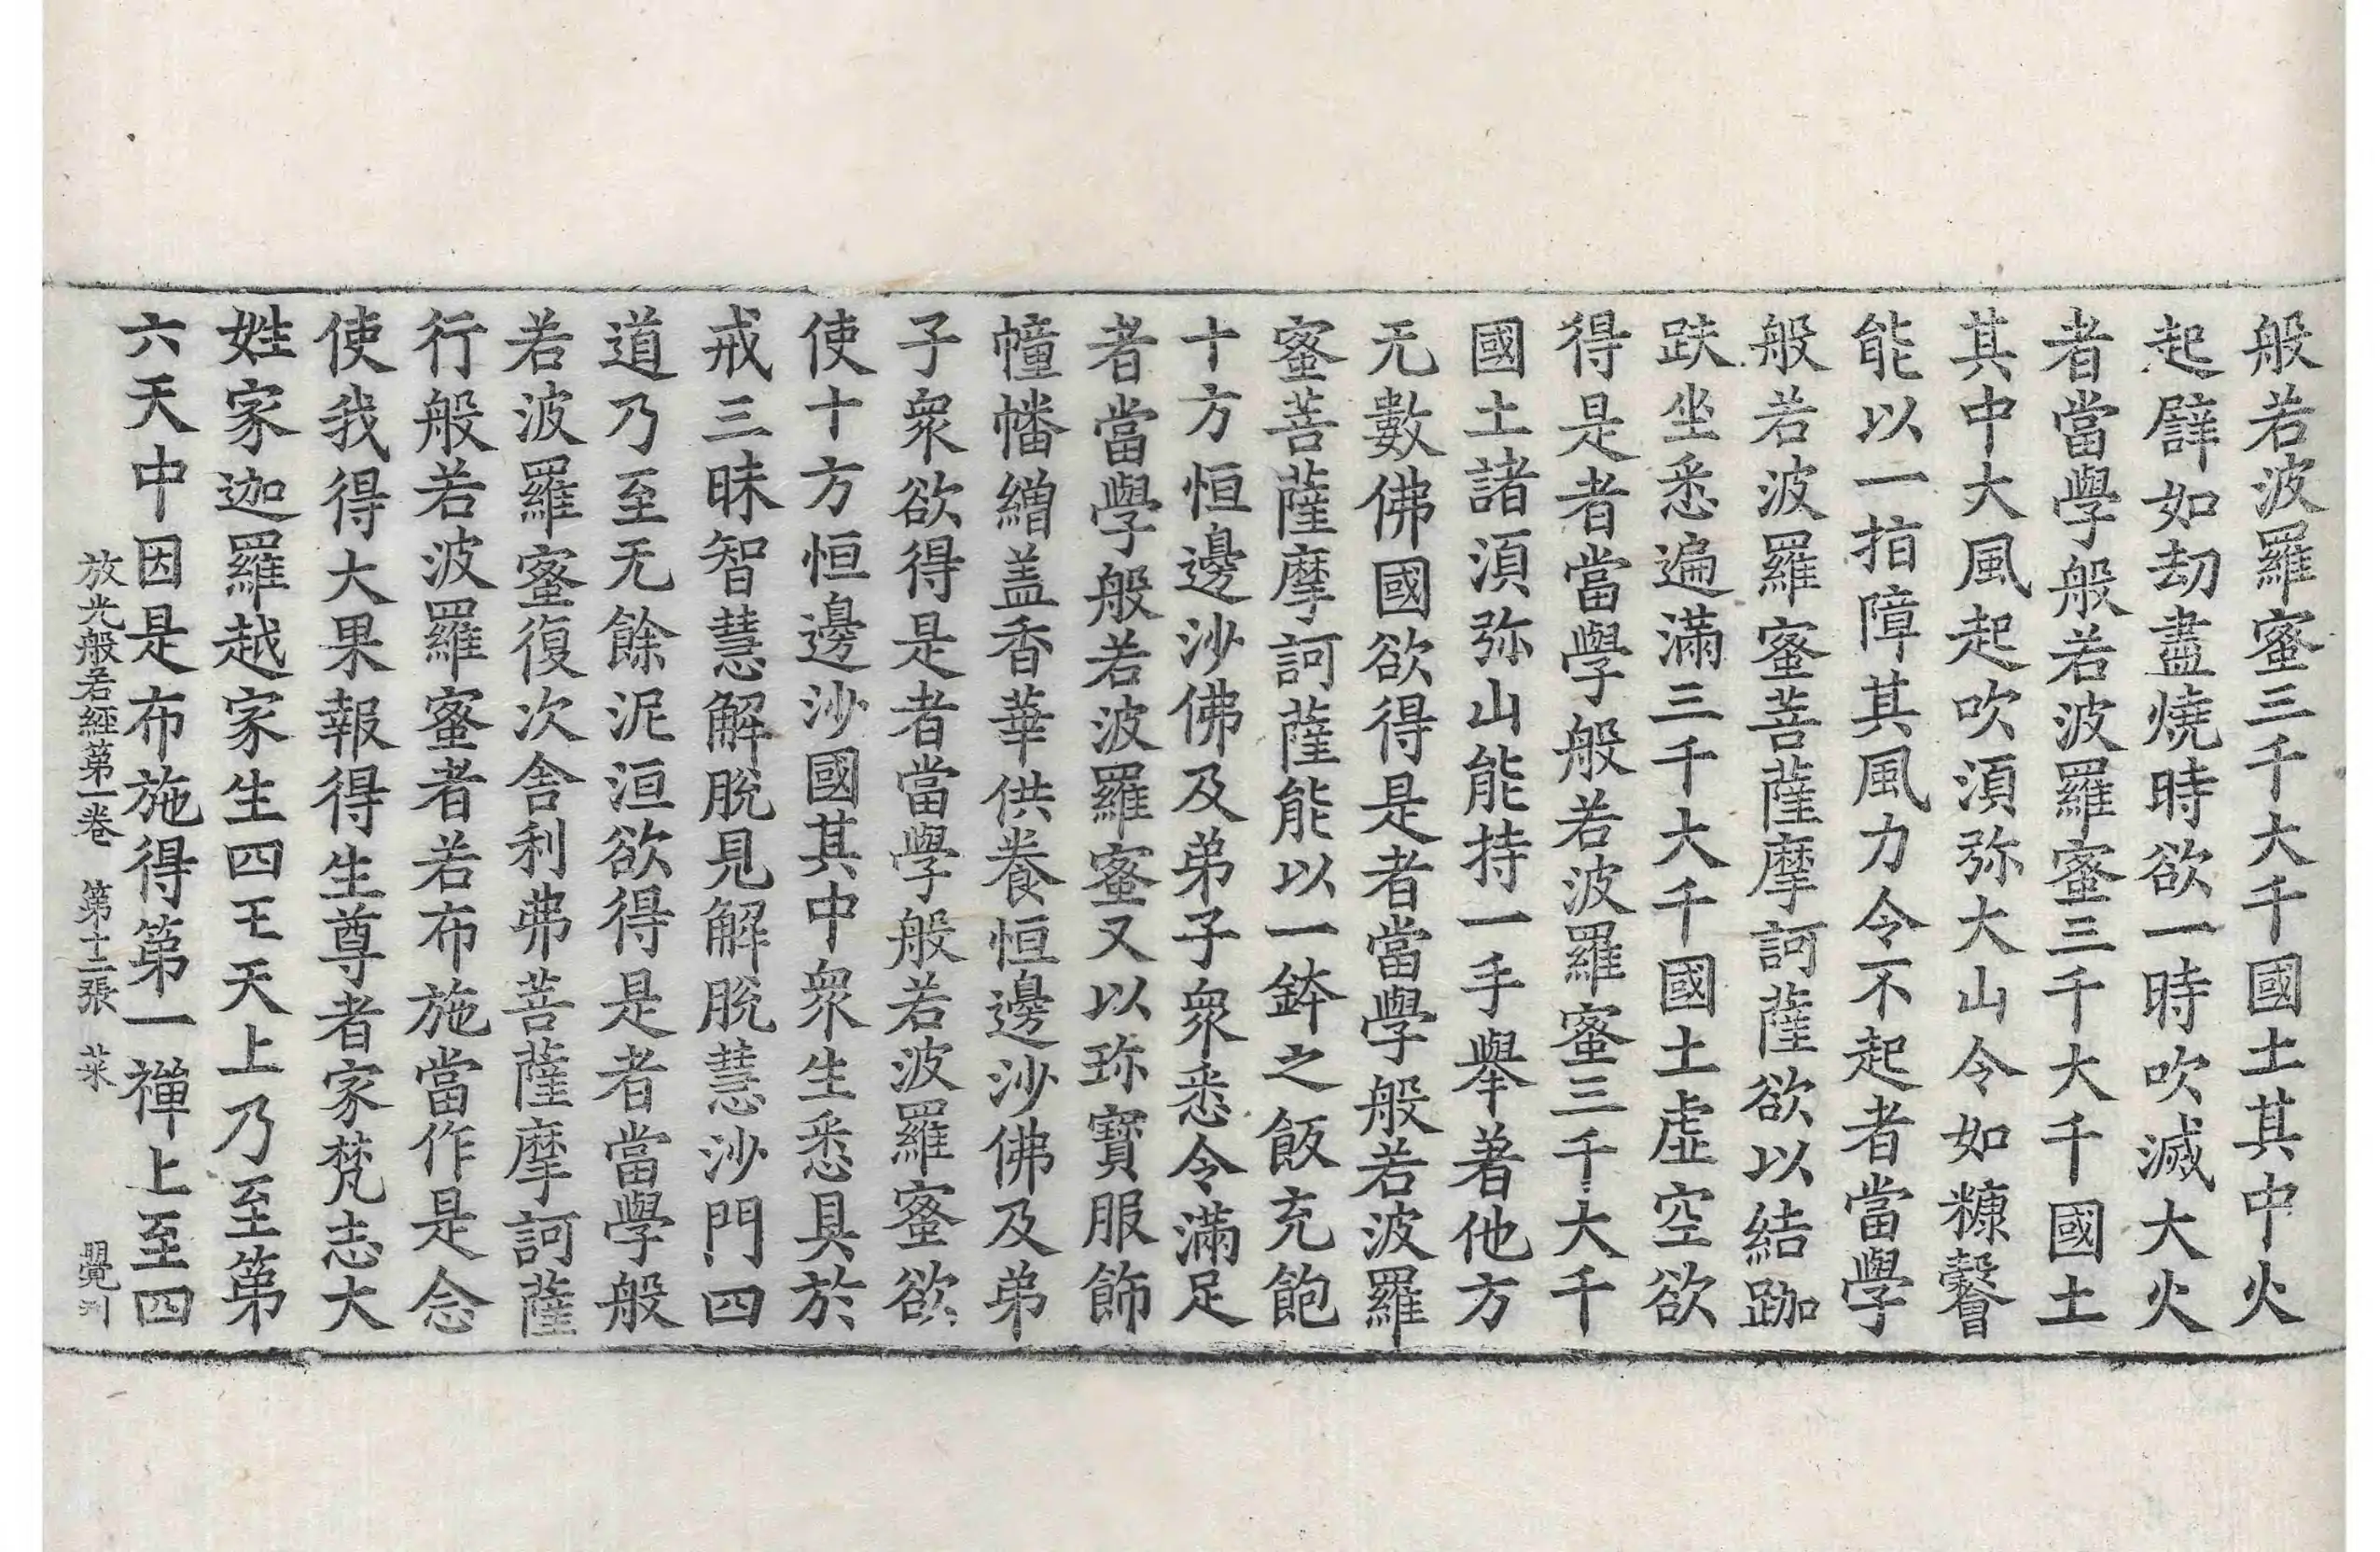 般若波羅蜜三千大千國土其中火
起譬如劫盡燒時欲一時吹滅大火
者當學般若波羅蜜三千大千國土
其中大風起吹湏弥大山令如糠䅽
能以一指障其風力令不起者當學
般若波羅蜜菩薩摩訶薩欲以結跏
趺坐悉遍滿三千大千國土虛空欲
得是者當學般若波羅蜜三千大千
國土諸湏弥山能持一手舉著他方
无數佛國欲得是者當學般若波羅
蜜菩薩摩訶薩能以一鉢之飯充飽
十方恒邊沙佛及弟子衆悉令滿足
者當學般若波羅蜜又以珎寶服飾
幢幡繒盖香華供養恒邊沙佛及弟
子衆欲得是者當學般若波羅蜜欲
使十方恒邊沙國其中衆生悉具於
戒三昧智慧解脫見解脫慧沙門四
道乃至无餘泥洹欲得是者當學般
若波羅蜜復次舍利弗菩薩摩訶薩
行般若波羅蜜者若布施當作是念
使我得大果報得生尊者家梵志大
姓家迦羅越家生四王天上乃至第
六天中因是布施得第一禪上至四
放光般若經第一卷 第十二張 菜